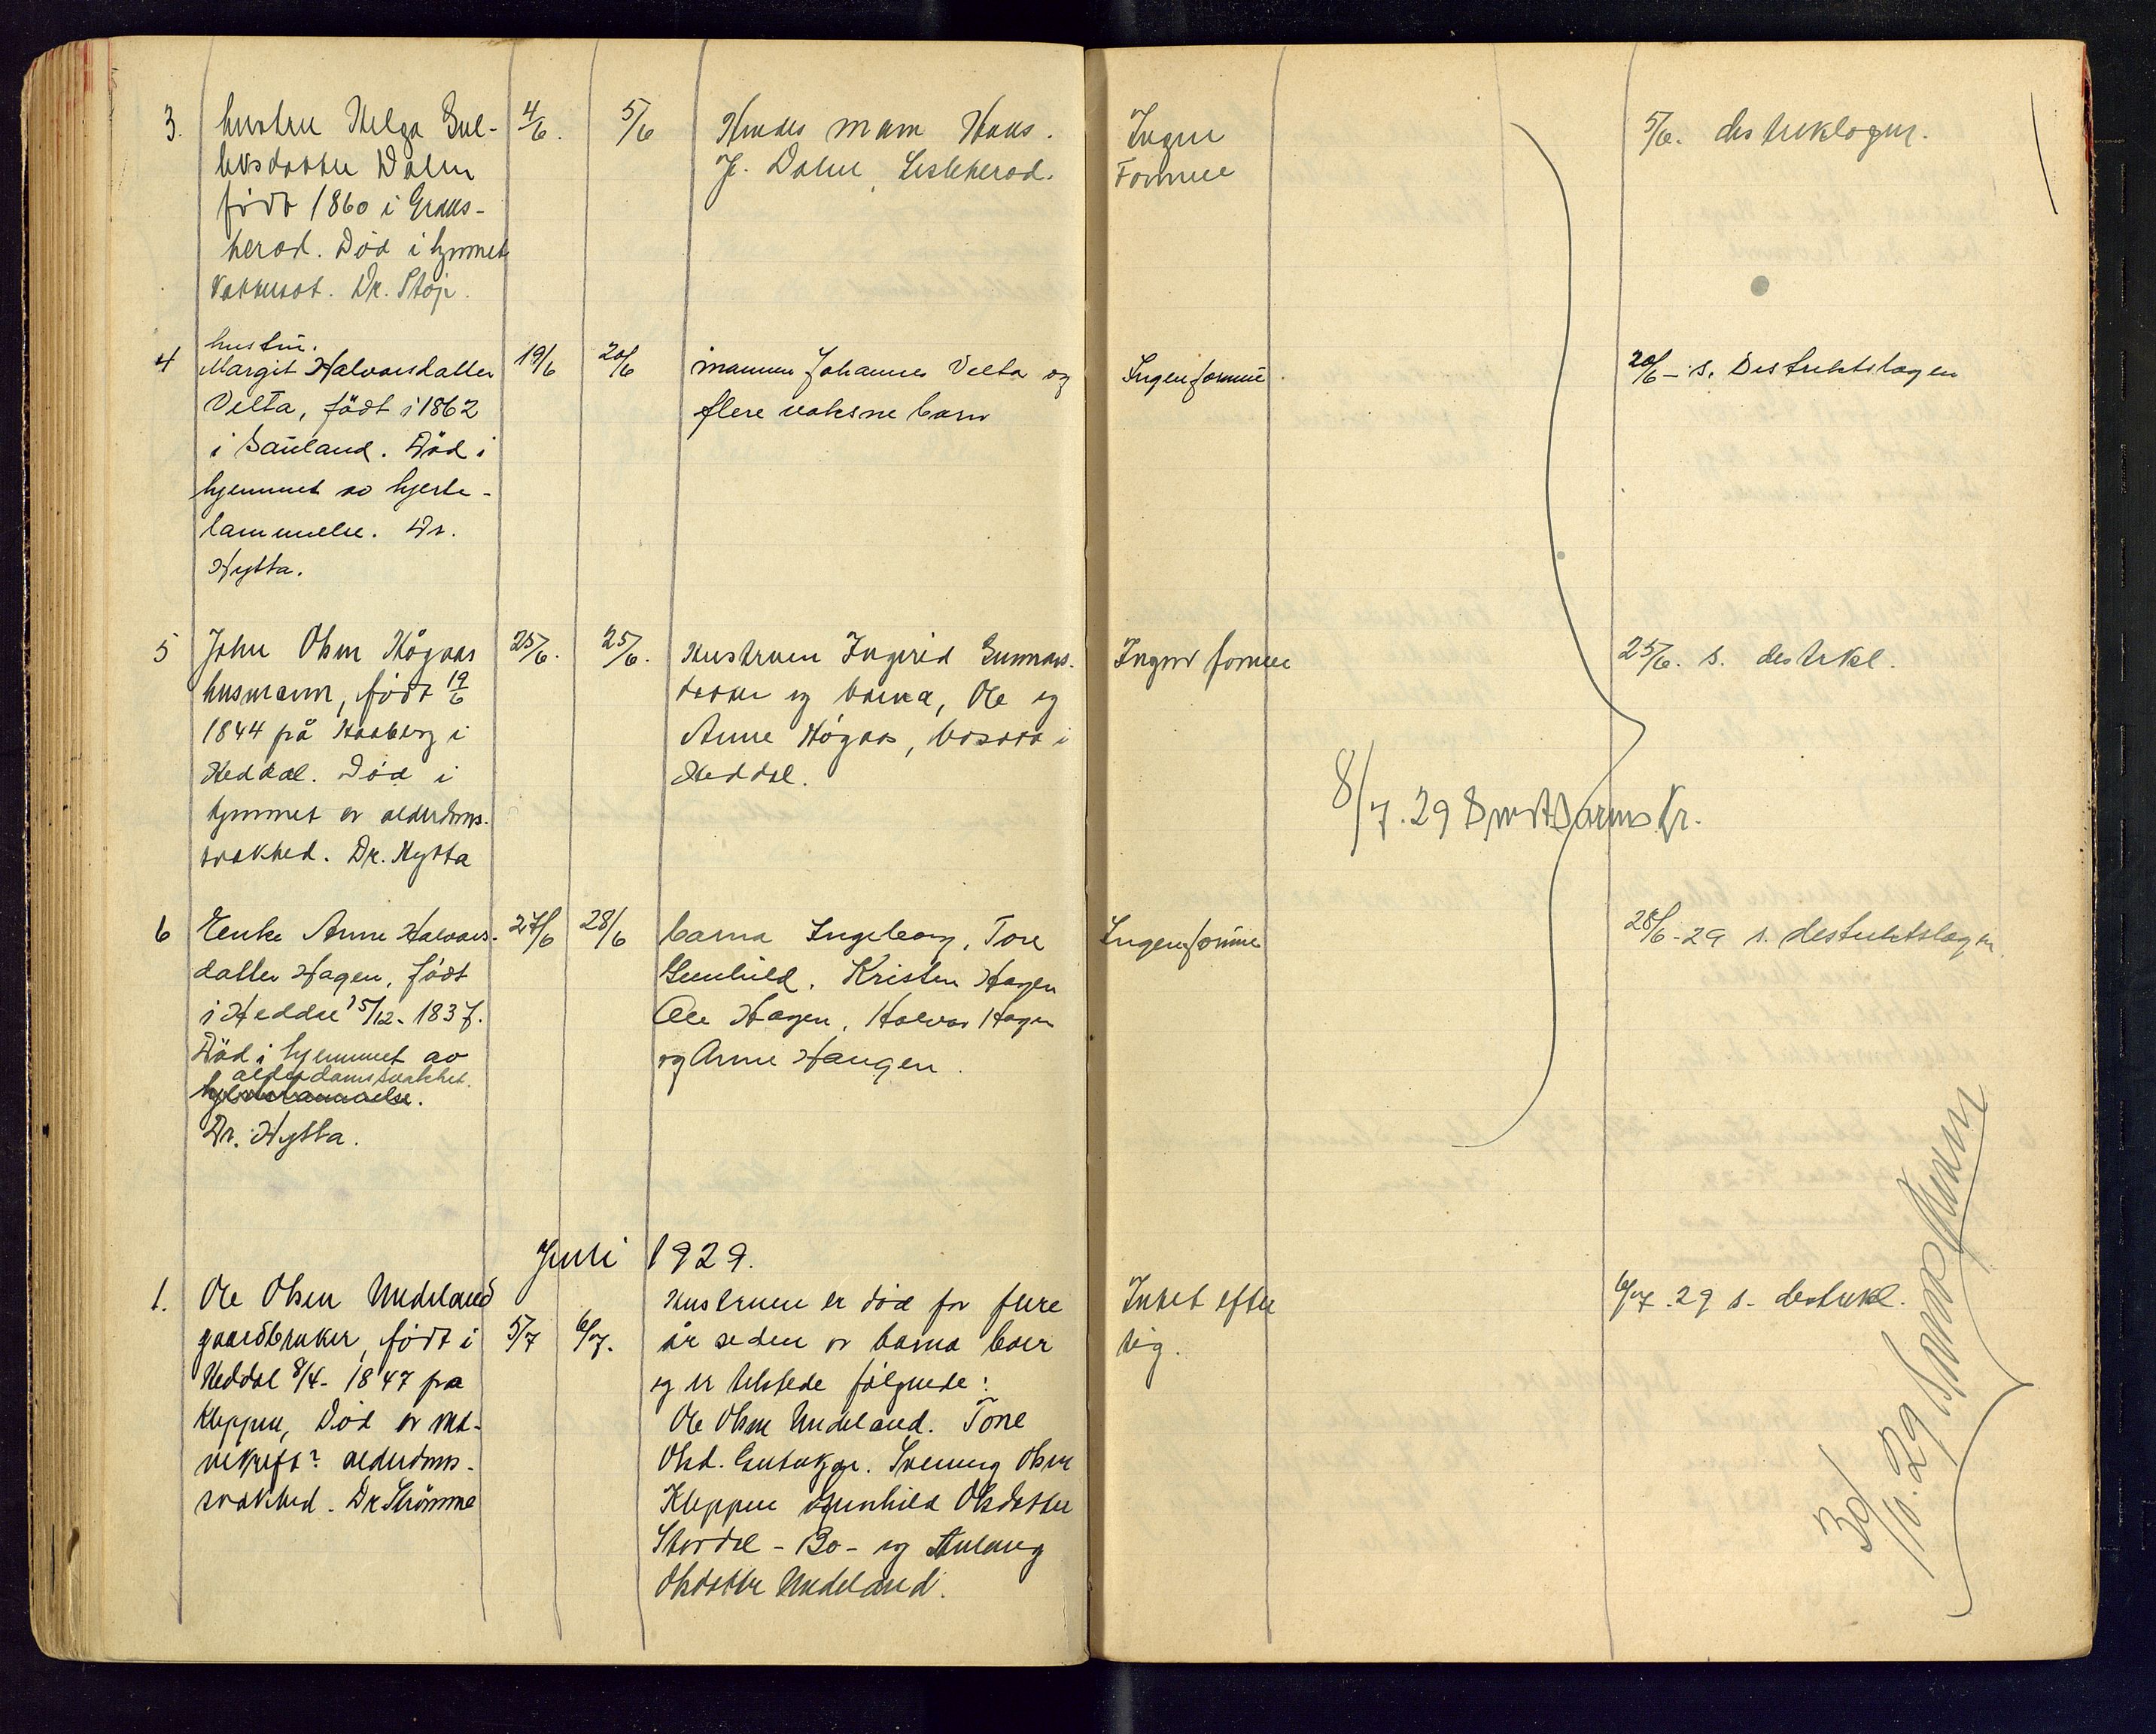 3. hustru Helga Gul- 4/6. 5/6 Hendes mann Hans. Ingen 5/6. distriktslægen.
leksdatter Dalen J. Dalen, Lisleherad. Formue
født 1860 i Grans-
herad. Død i hjemmet
Dr. Støp.
hustru.
4 Margit Halvorsdatter 19/6 20/6 mannen Johannes Velta og Ingen formue 20/6 - s. Distriktslægen
Velta, født i 1862 flere voksne barn
i Sauland. Død i
hjemmet av hjerte-
lammelse. Dr.
Hytta.
5 John Olsen Høgaas 25/6. 25/6. Hustruen Ingerid Gunnars- Ingen formue 25/6. s. distrkl.
husmann, født 19/6 datter og barna, Ole og
1844 på Haaberg i Anne Høgaas, bosatt i
Heddal. Død i Heddal.
hjemmet av alderdoms- 8/7.29
svakhed. Dr. Hytta
6 Enke Anne Halvors- 27/6 28/6 barna Ingeborg, Tore Ingen formue 28/6-29 s. distriktslægen
datter Hagen, født Gunhild, Kristen Hagen
i Heddal 15/12-1837. Ole Hagen, Halvor Hagen
Død i hjemmet av og Anne Haugen.
alderdomsvakhet.
Dr. Hytta.
Juli 1929.
1. Ole Olsen Undeland Hustruen er død for flere Intet efter 6/7.29 s. distrkl.
gaardbruker, født i 5/7 6/7. år siden av barna lever sig.
Heddal 8/4-1847 på og er tilstede følgende:
Kleppen, Død av ma- Ole Olsen Undeland. Tone
vekreft? alderdoms- Olsd. Svenung Olsen
svakhed. Dr Strømme Kleppen Gunhild Olsdatter
Stordal - Bø - og Aslaug
Olsdatter Undeland.
30/10.29